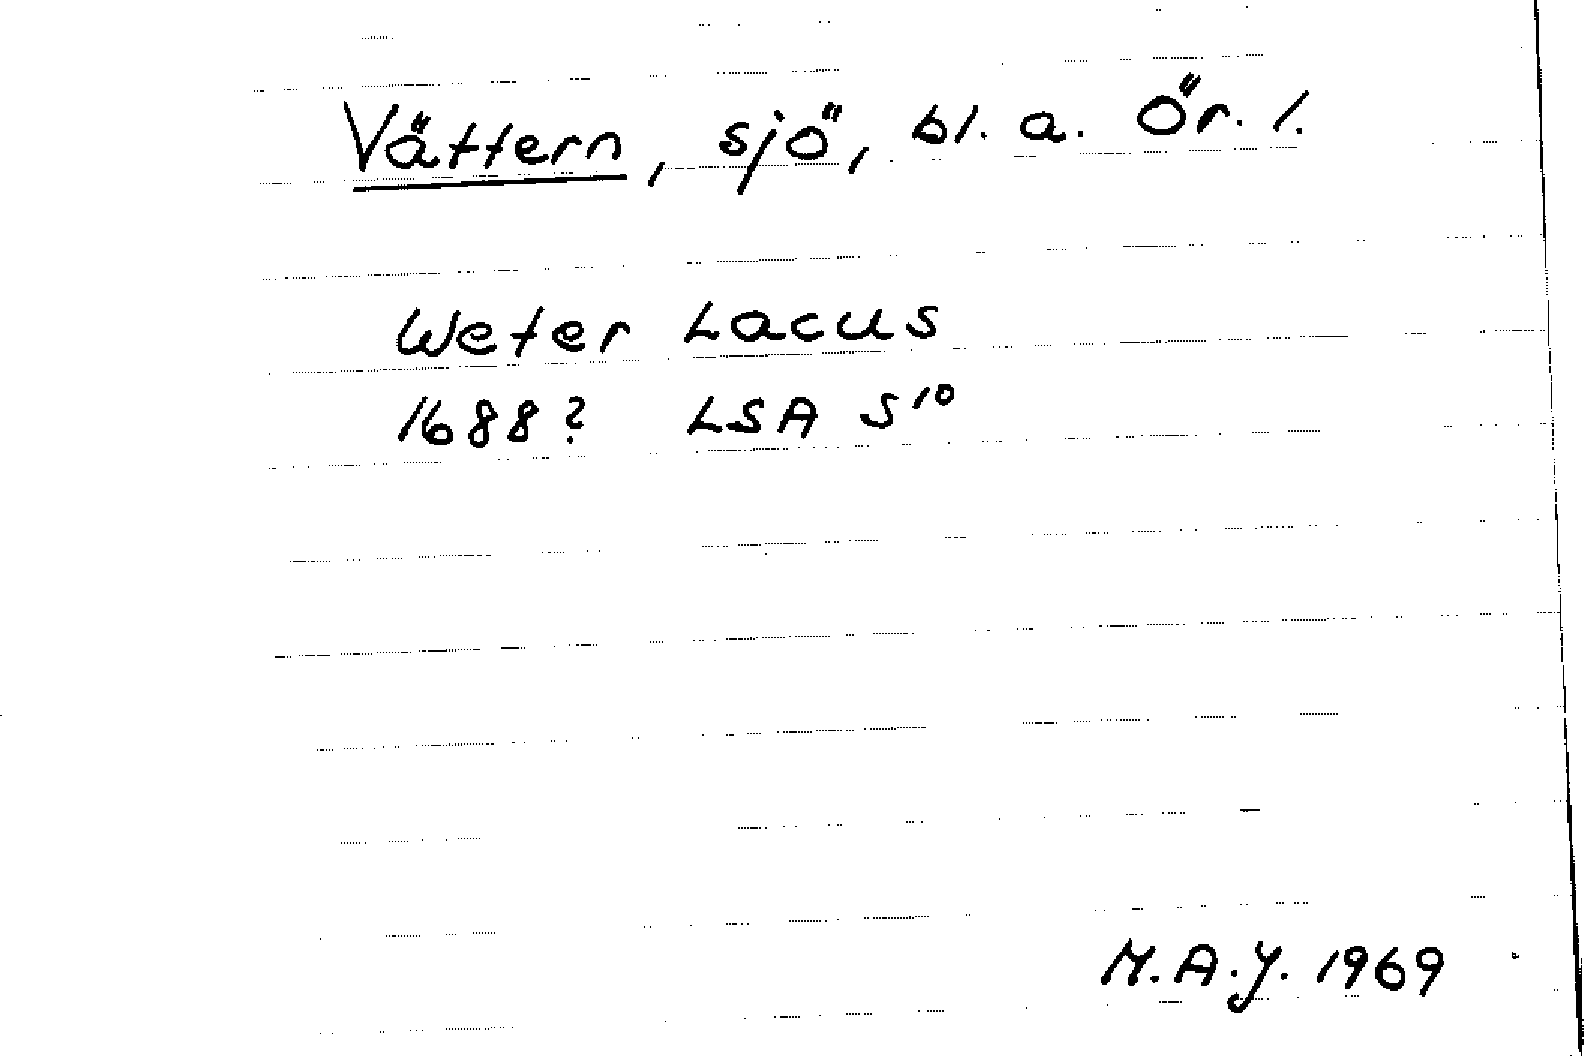 Vättern, sjö, bl. a. Ör. l.
Weter Lacus
1688? LSA S¹⁰
M.A.J. 1969